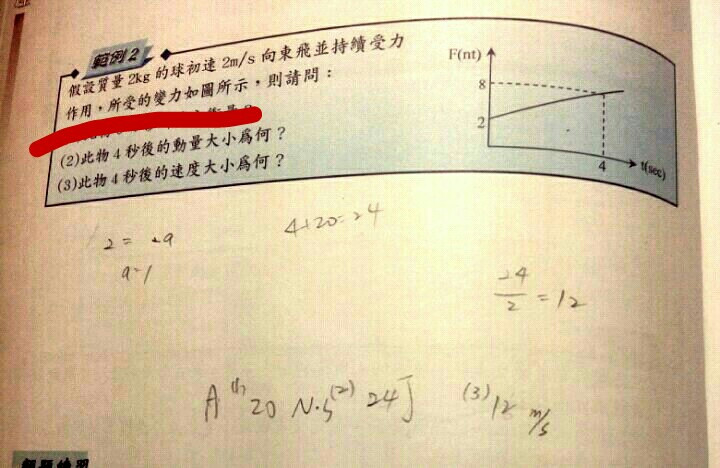 範例 2
假設質量 2kg 的球初速 2m/s 向東飛並持續受力
作用，所受的變力如圖所示，則請問：
(2)此物 4 秒後的動量大小為何？
(3)此物 4 秒後的速度大小為何？
F(nt)
8
2
4
t(sec)
2 = 2a
a=1
4+20=24
24
2 = 12
A (1) 20 N·S (2) 24J (3) 12 m/s